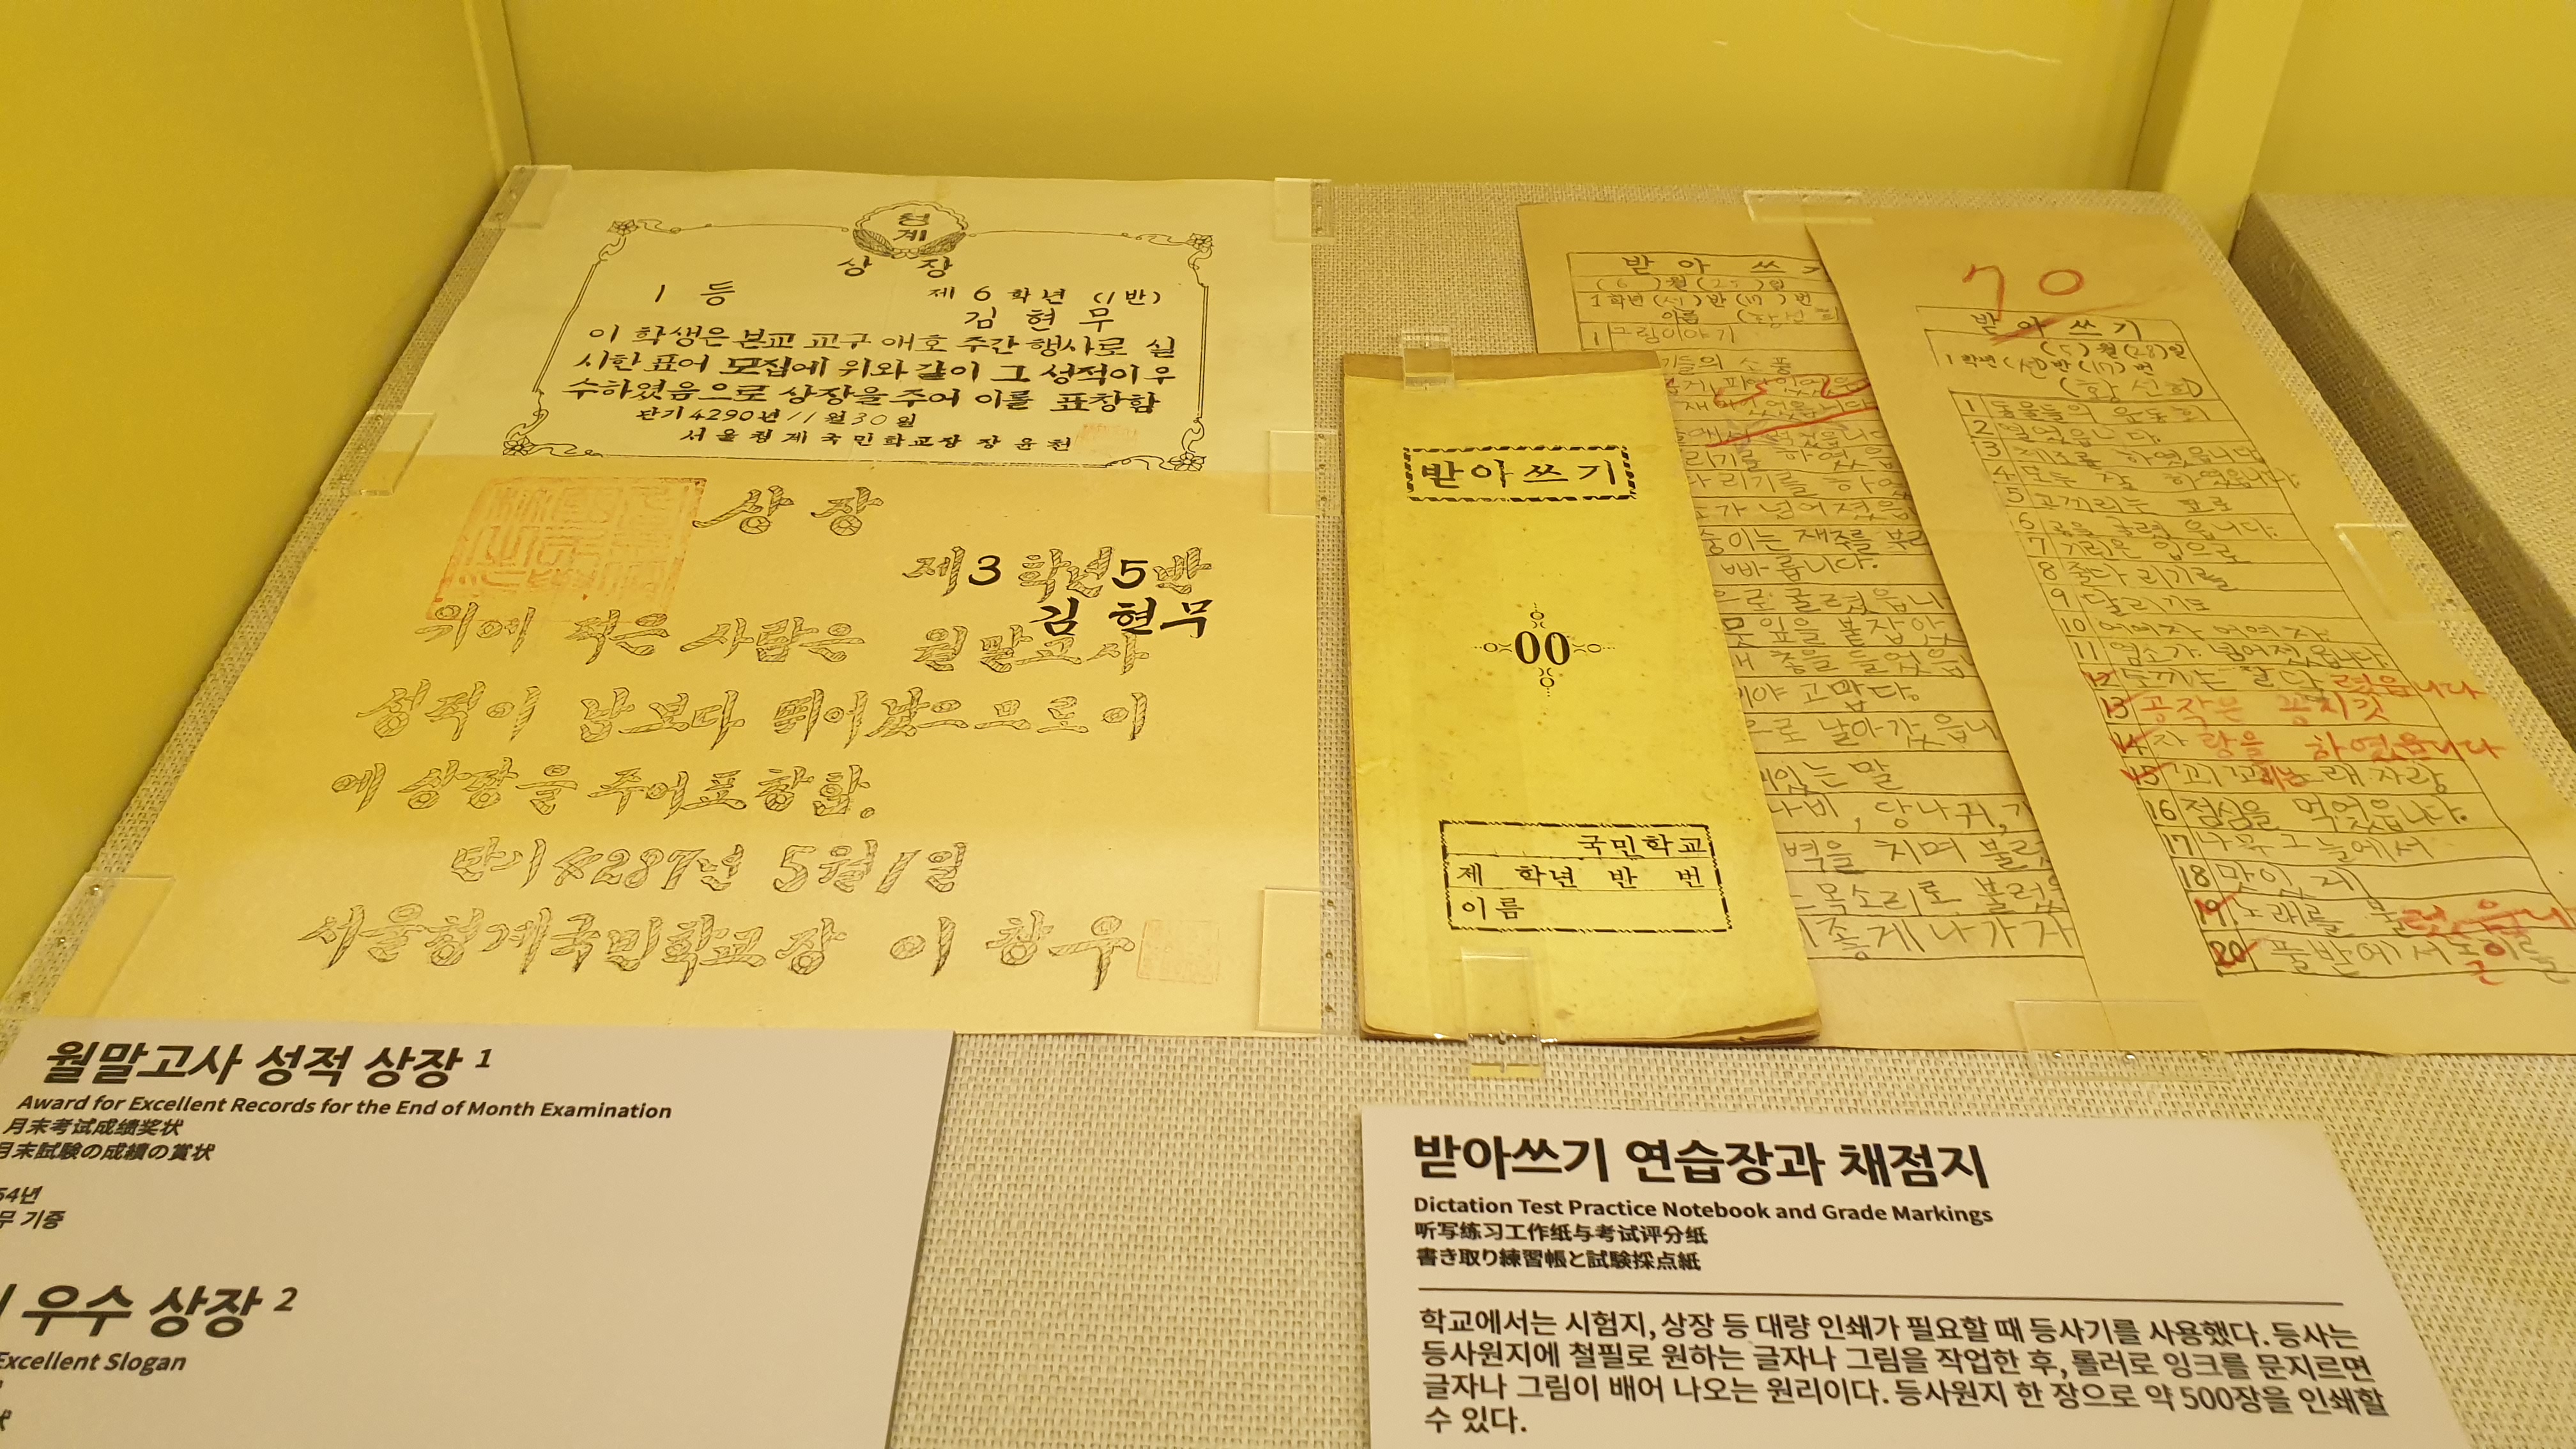 천
계
상 장
1 등 제 6 학년 (1반)
김 현 무
이 학생은 본교 교구 애호 주간 행사로 실
시한 표어 모집에 위와 같이 그 성적이 우
수하였음으로 상장을 주어 이를 표창함
단기 4290년 11월 30일
서울청계국민학교장 장윤천
상 장
제3학년5반
김 현무
위에 적은 사람은 월말고사
성적이 남보다 뛰어났으므로 이
에 상장을 주어 표창함.
단기 4287년 5월 1일
서울청계국민학교장 이창우
받아쓰기
00
국민학교
제 학년 반 번
이름
받 아 쓰
(6)월(25)일
1학년(선)반(17)번
이름
1 그림이야기
기들의 소풍
리기를 하였읍
다리기를 하
가 넘어졌읍
숭이는 재주를 부리
빠릅니다.
으로 굴렸읍니
이야 고맙다.
으로 날아갔읍니
있는 말
나비, 당나귀,
벽을 치며 불렀
목소리로 불렀
좋게 나가
70
받 아 쓰 기
(5)월(28)일
1학년(선)반(17)번
(황선희)
1 동물들의 운동회
2 일었읍니다.
3 체조를 하였읍니다
4 모두 잘 하였읍니다.
5 코끼리는 코로
6 공을 굴렸읍니다.
7 기린은 입으로
8 줄다리기를
9 달리기도
10 어여차 어여차
11 염소가 넘어졌읍니다.
12 토끼는 달렸읍니다
13 공작은 꽁지깃
14 자랑을 하였읍니다
15 꾀꼬리는 노래자랑
16 점심을 먹었읍니다.
17 나무 그늘에서
18 맛있게
19 노래를 불렀읍니
20 풀밭에서 놀이를
월말고사 성적 상장 1
Award for Excellent Records for the End of Month Examination
月末考试成绩奖状
月末試験の成績の賞状
54년
무 기증
우수 상장 2
Excellent Slogan
받아쓰기 연습장과 채점지
Dictation Test Practice Notebook and Grade Markings
听写练习工作纸与考试评分纸
書き取り練習帳と試験採点紙
학교에서는 시험지, 상장 등 대량 인쇄가 필요할 때 등사기를 사용했다. 등사는
등사원지에 철필로 원하는 글자나 그림을 작업한 후, 롤러로 잉크를 문지르면
글자나 그림이 배어 나오는 원리이다. 등사원지 한 장으로 약 500장을 인쇄할
수 있다.